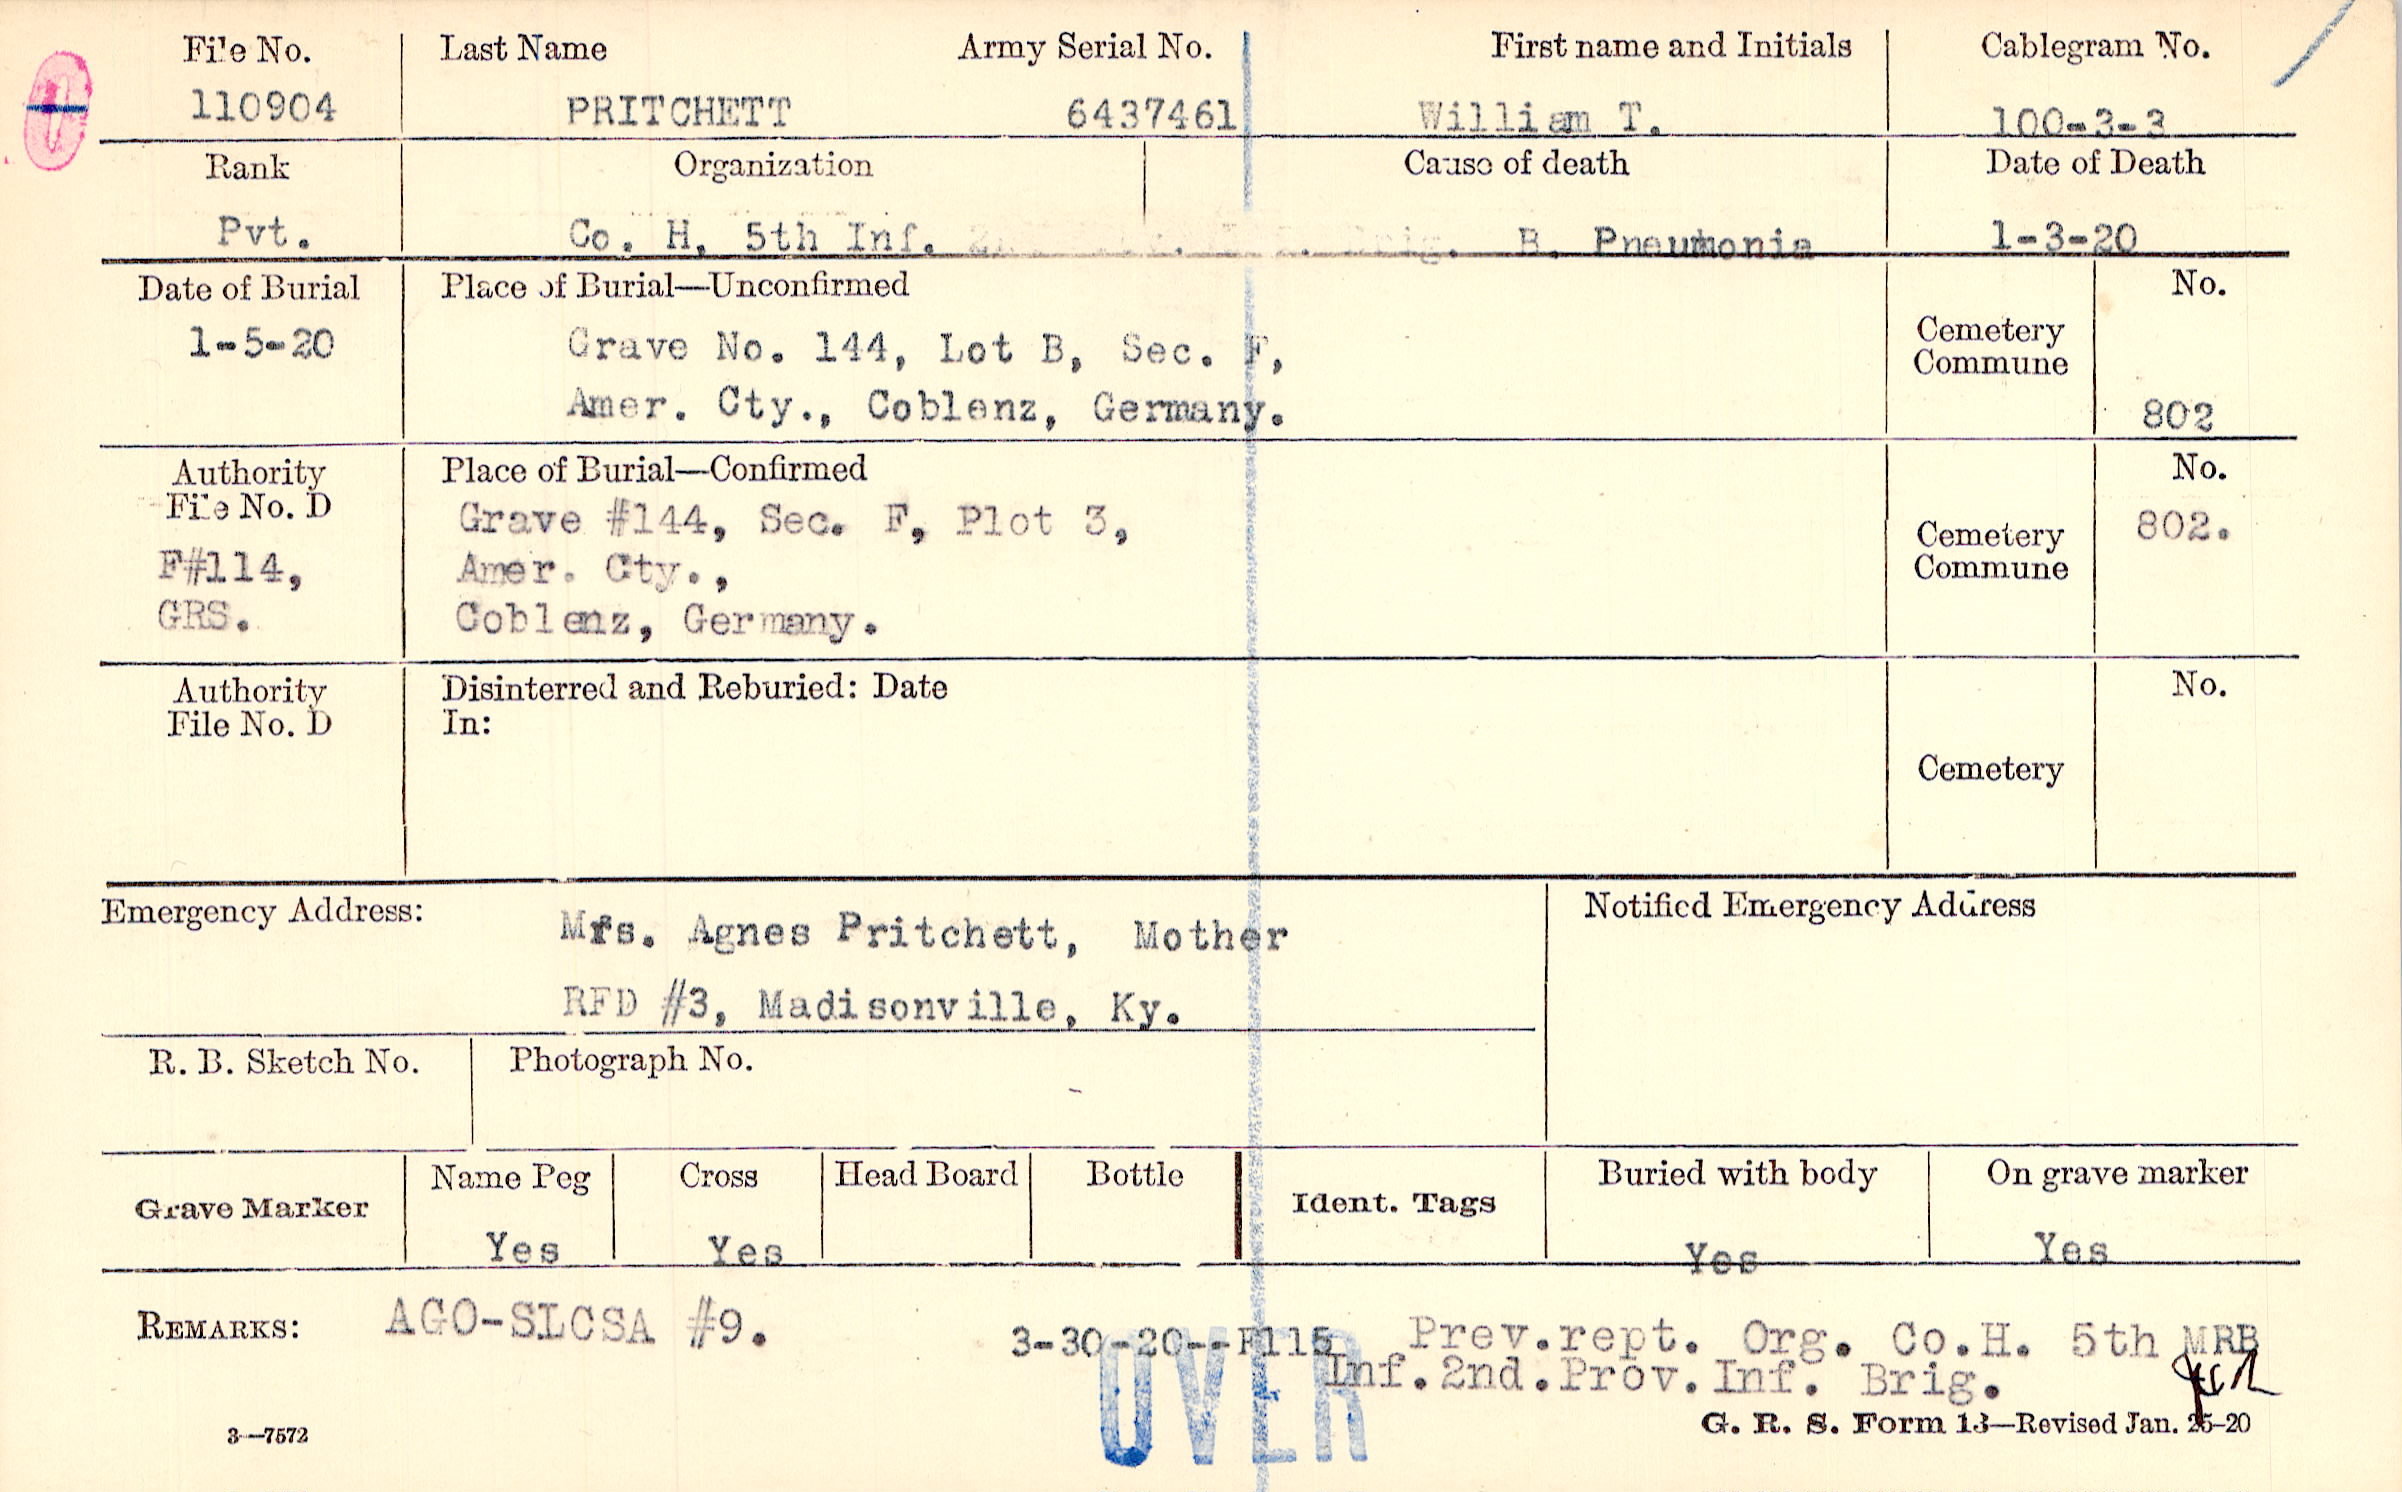 File No. Last Name Army Serial No. First name and Initials Cablegram No.
110904 PRITCHETT 6437461 William T. 100-3-3
Rank Organization Cause of death Date of Death
Pvt. Co. H, 5th Inf. Brig. B. Pneumonia 1-3-20
Date of Burial Place of Burial—Unconfirmed No.
1-5-20 Grave No. 144, Lot B, Sec. F, Cemetery
Commune
Amer. Cty., Coblenz, Germany. 802
Authority Place of Burial—Confirmed No.
File No. D Grave #144, Sec. F, Plot 3, 802.
F#114, Amer. Cty., Cemetery
Commune
GRS. Coblenz, Germany.
Authority Disinterred and Reburied: Date No.
File No. D In:
Cemetery
Emergency Address: Mrs. Agnes Pritchett, Mother Notified Emergency Address
RFD #3, Madisonville, Ky.
R. B. Sketch No. Photograph No.
Grave Marker Name Peg Cross Head Board Bottle Ident. Tags Buried with body On grave marker
Yes Yes Yes Yes
REMARKS: AGO-SLCSA #9. 3-30-20--F115 Prev.rept. Org. Co.H. 5th MRB
Inf.2nd.Prov.Inf. Brig.
OVER
3—7572 G. R. S. Form 13—Revised Jan. 25-20